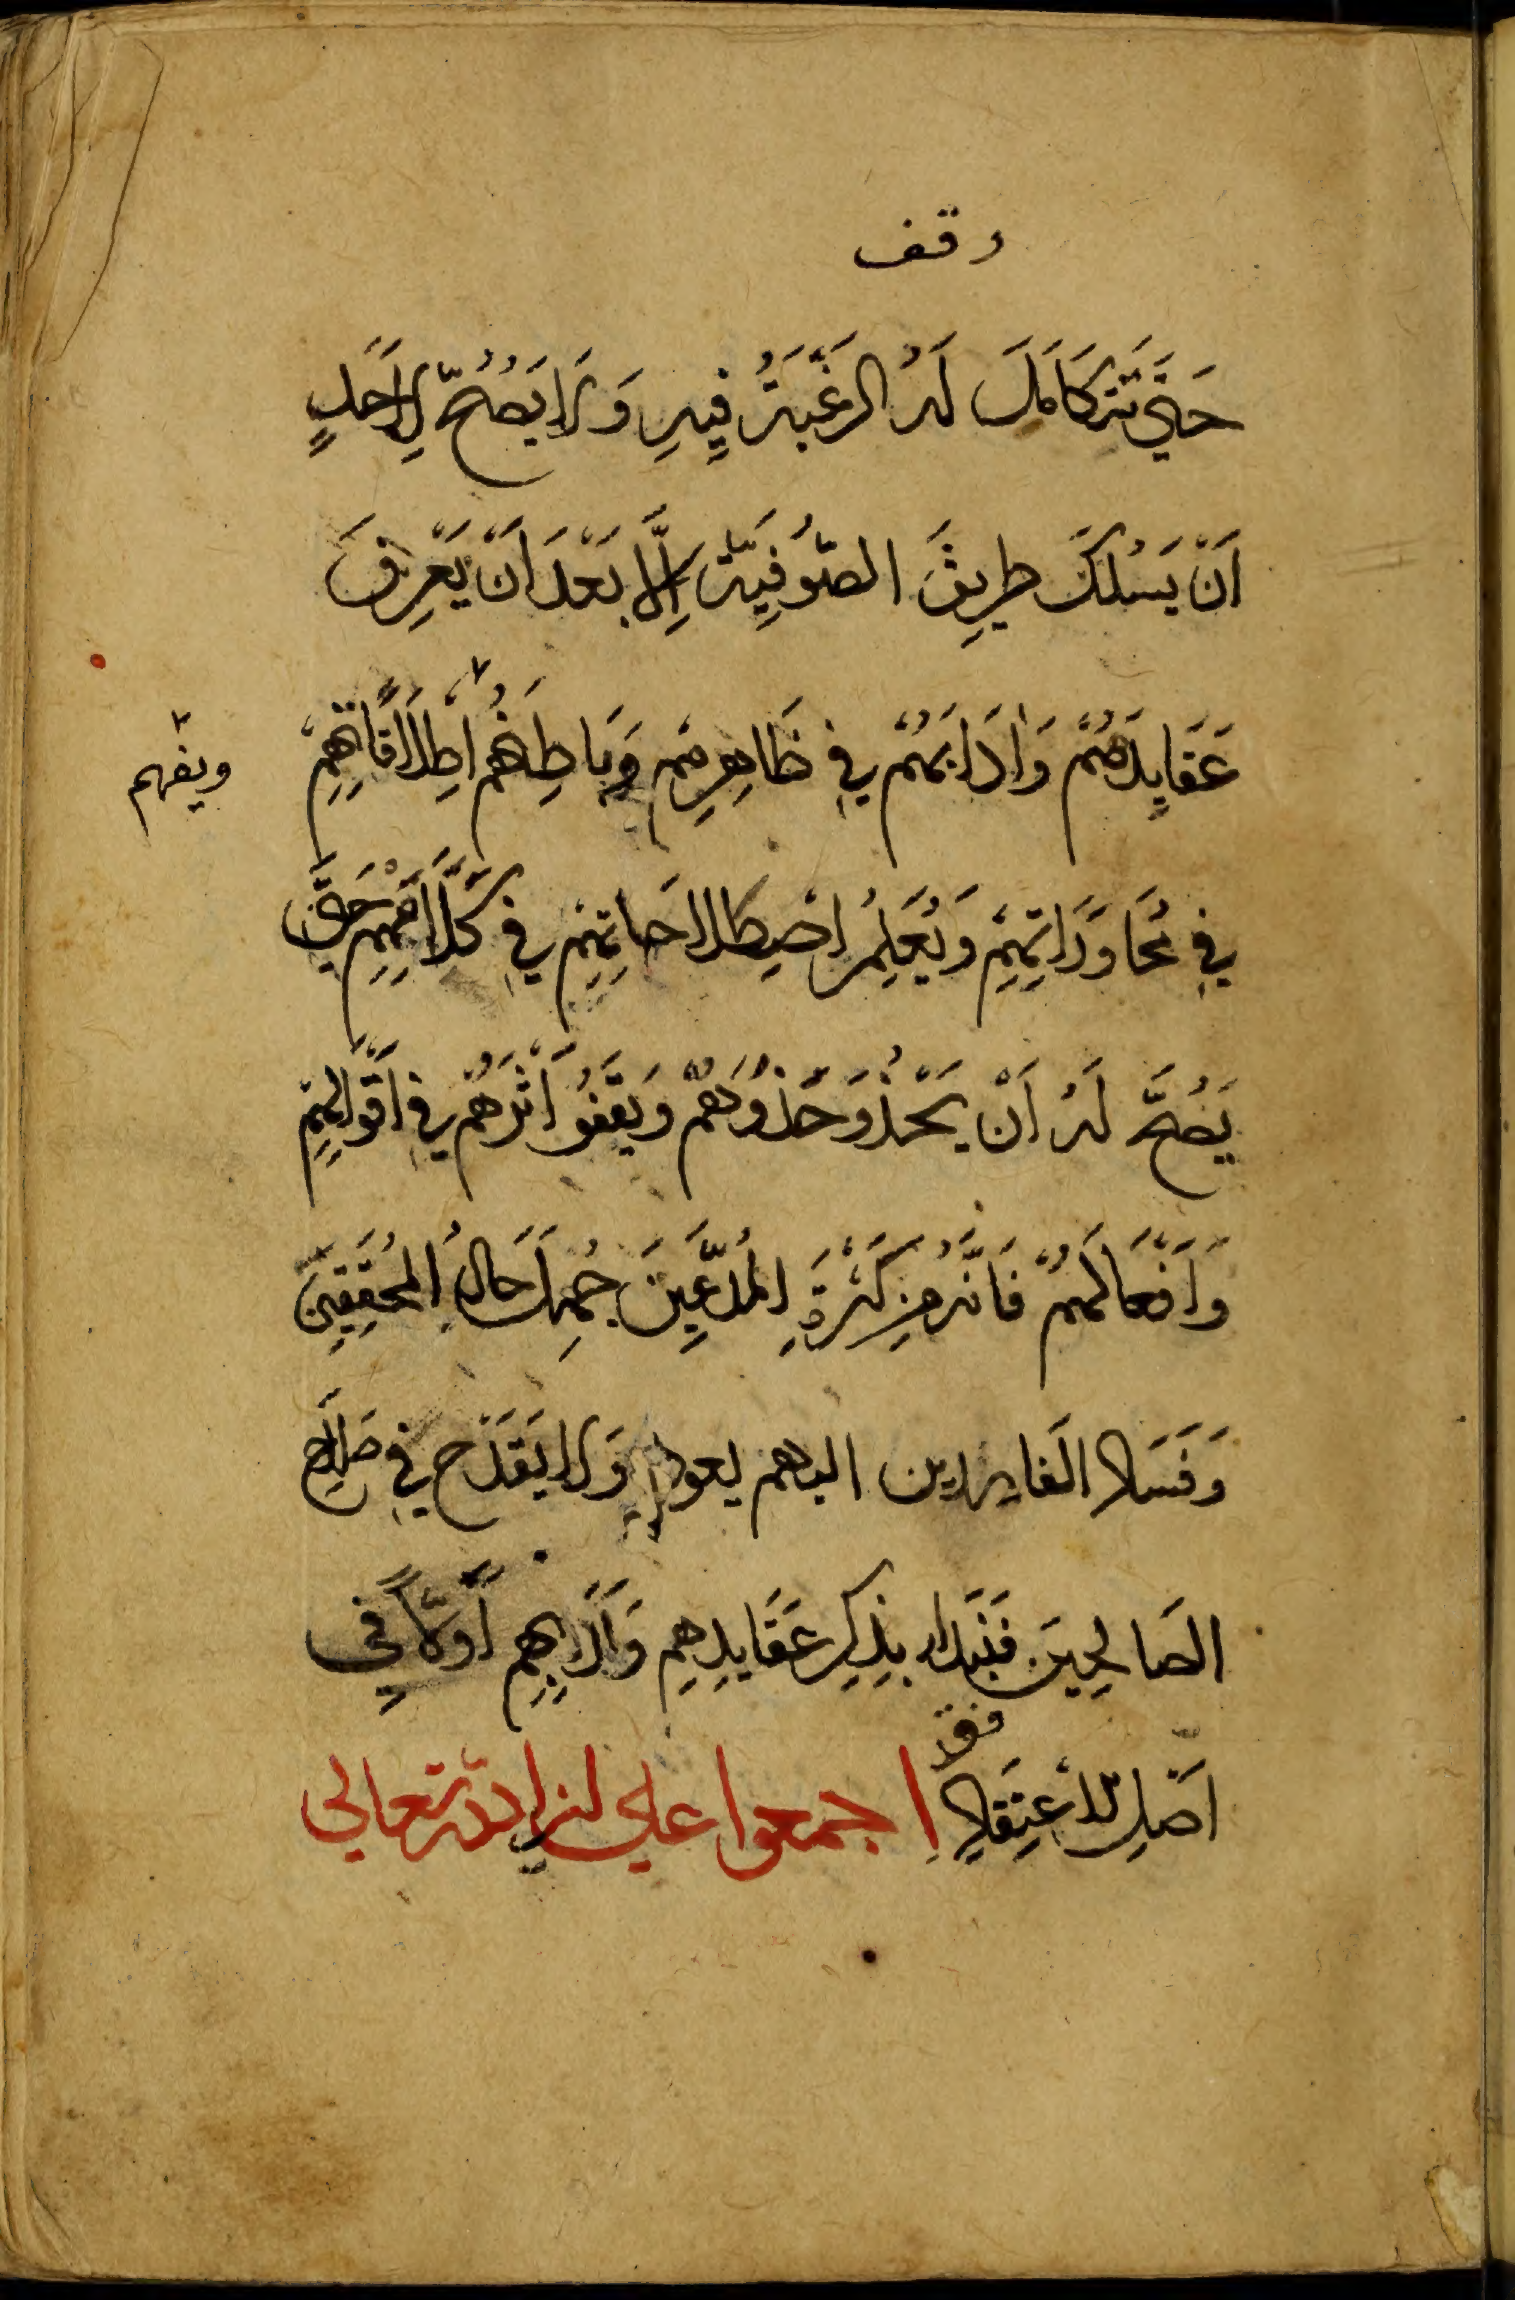 وقف
حَتَّي تَتَكَامَلَ لَهُ الرَغْبَةُ فِيهِ وَلَا يَصُحّ لِاَحَدٍ
اَنْ يَسْلُكَ طَرِيقَ الصُّوفِيَّة اِلَّا بَعْدَ اَنْ يَعْرِفَ
عَقَايِدَهُمْ وَادَابَهُمْ فِي ظَاهِرِهِمْ وَبَاطِنِهُمْ اِطْلَاقَاتِهِمْ
ويفهم
فِي مُحَاوَرَاتِهِمْ وَيُعَلِمُ اصْطِلَاحَاتِهِمْ فِي كَلَامِهِمْ حَتَّي
يَصُحَّ لَهُ اَنْ يَحْذُوَ حَذْوَهُمْ وَيَقفُو اَثَرَهُمْ فِي اَقْوَالِهِمْ
وَاَفْعَالَهُمْ فَاِنَّهُ مِنْ كَثْرَةِ المُدَّعِينَ جُهِلَ حَالُ المُحَقِقِينَ
وَفَسَاد الفَاسدين اليهم يعود وَلَا يَقْدَح فِي صَلَاحِ
الصَالِحِينَ فَنَبْدَا بِذِكْرِ عَقَايِدِهِمْ وَآدَابِهِمْ اَوَّلًا فِي
اَصْلِ الاعْتِقَادِ اجمعوا علي ان الله تعالي